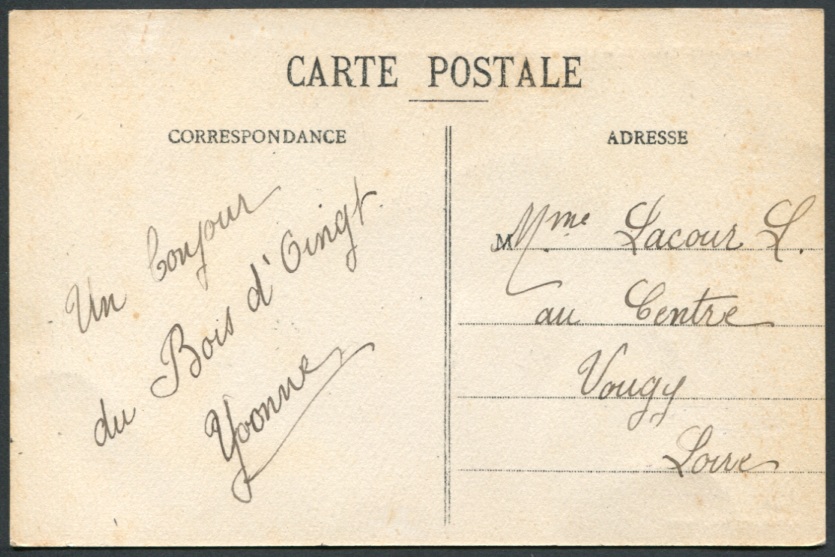 CARTE POSTALE
CORRESPONDANCE
Un bonjour
du Bois d'Oingt.
Yvonne
ADRESSE
M Mme Lacour L.
au Centre
Vougy
Loire